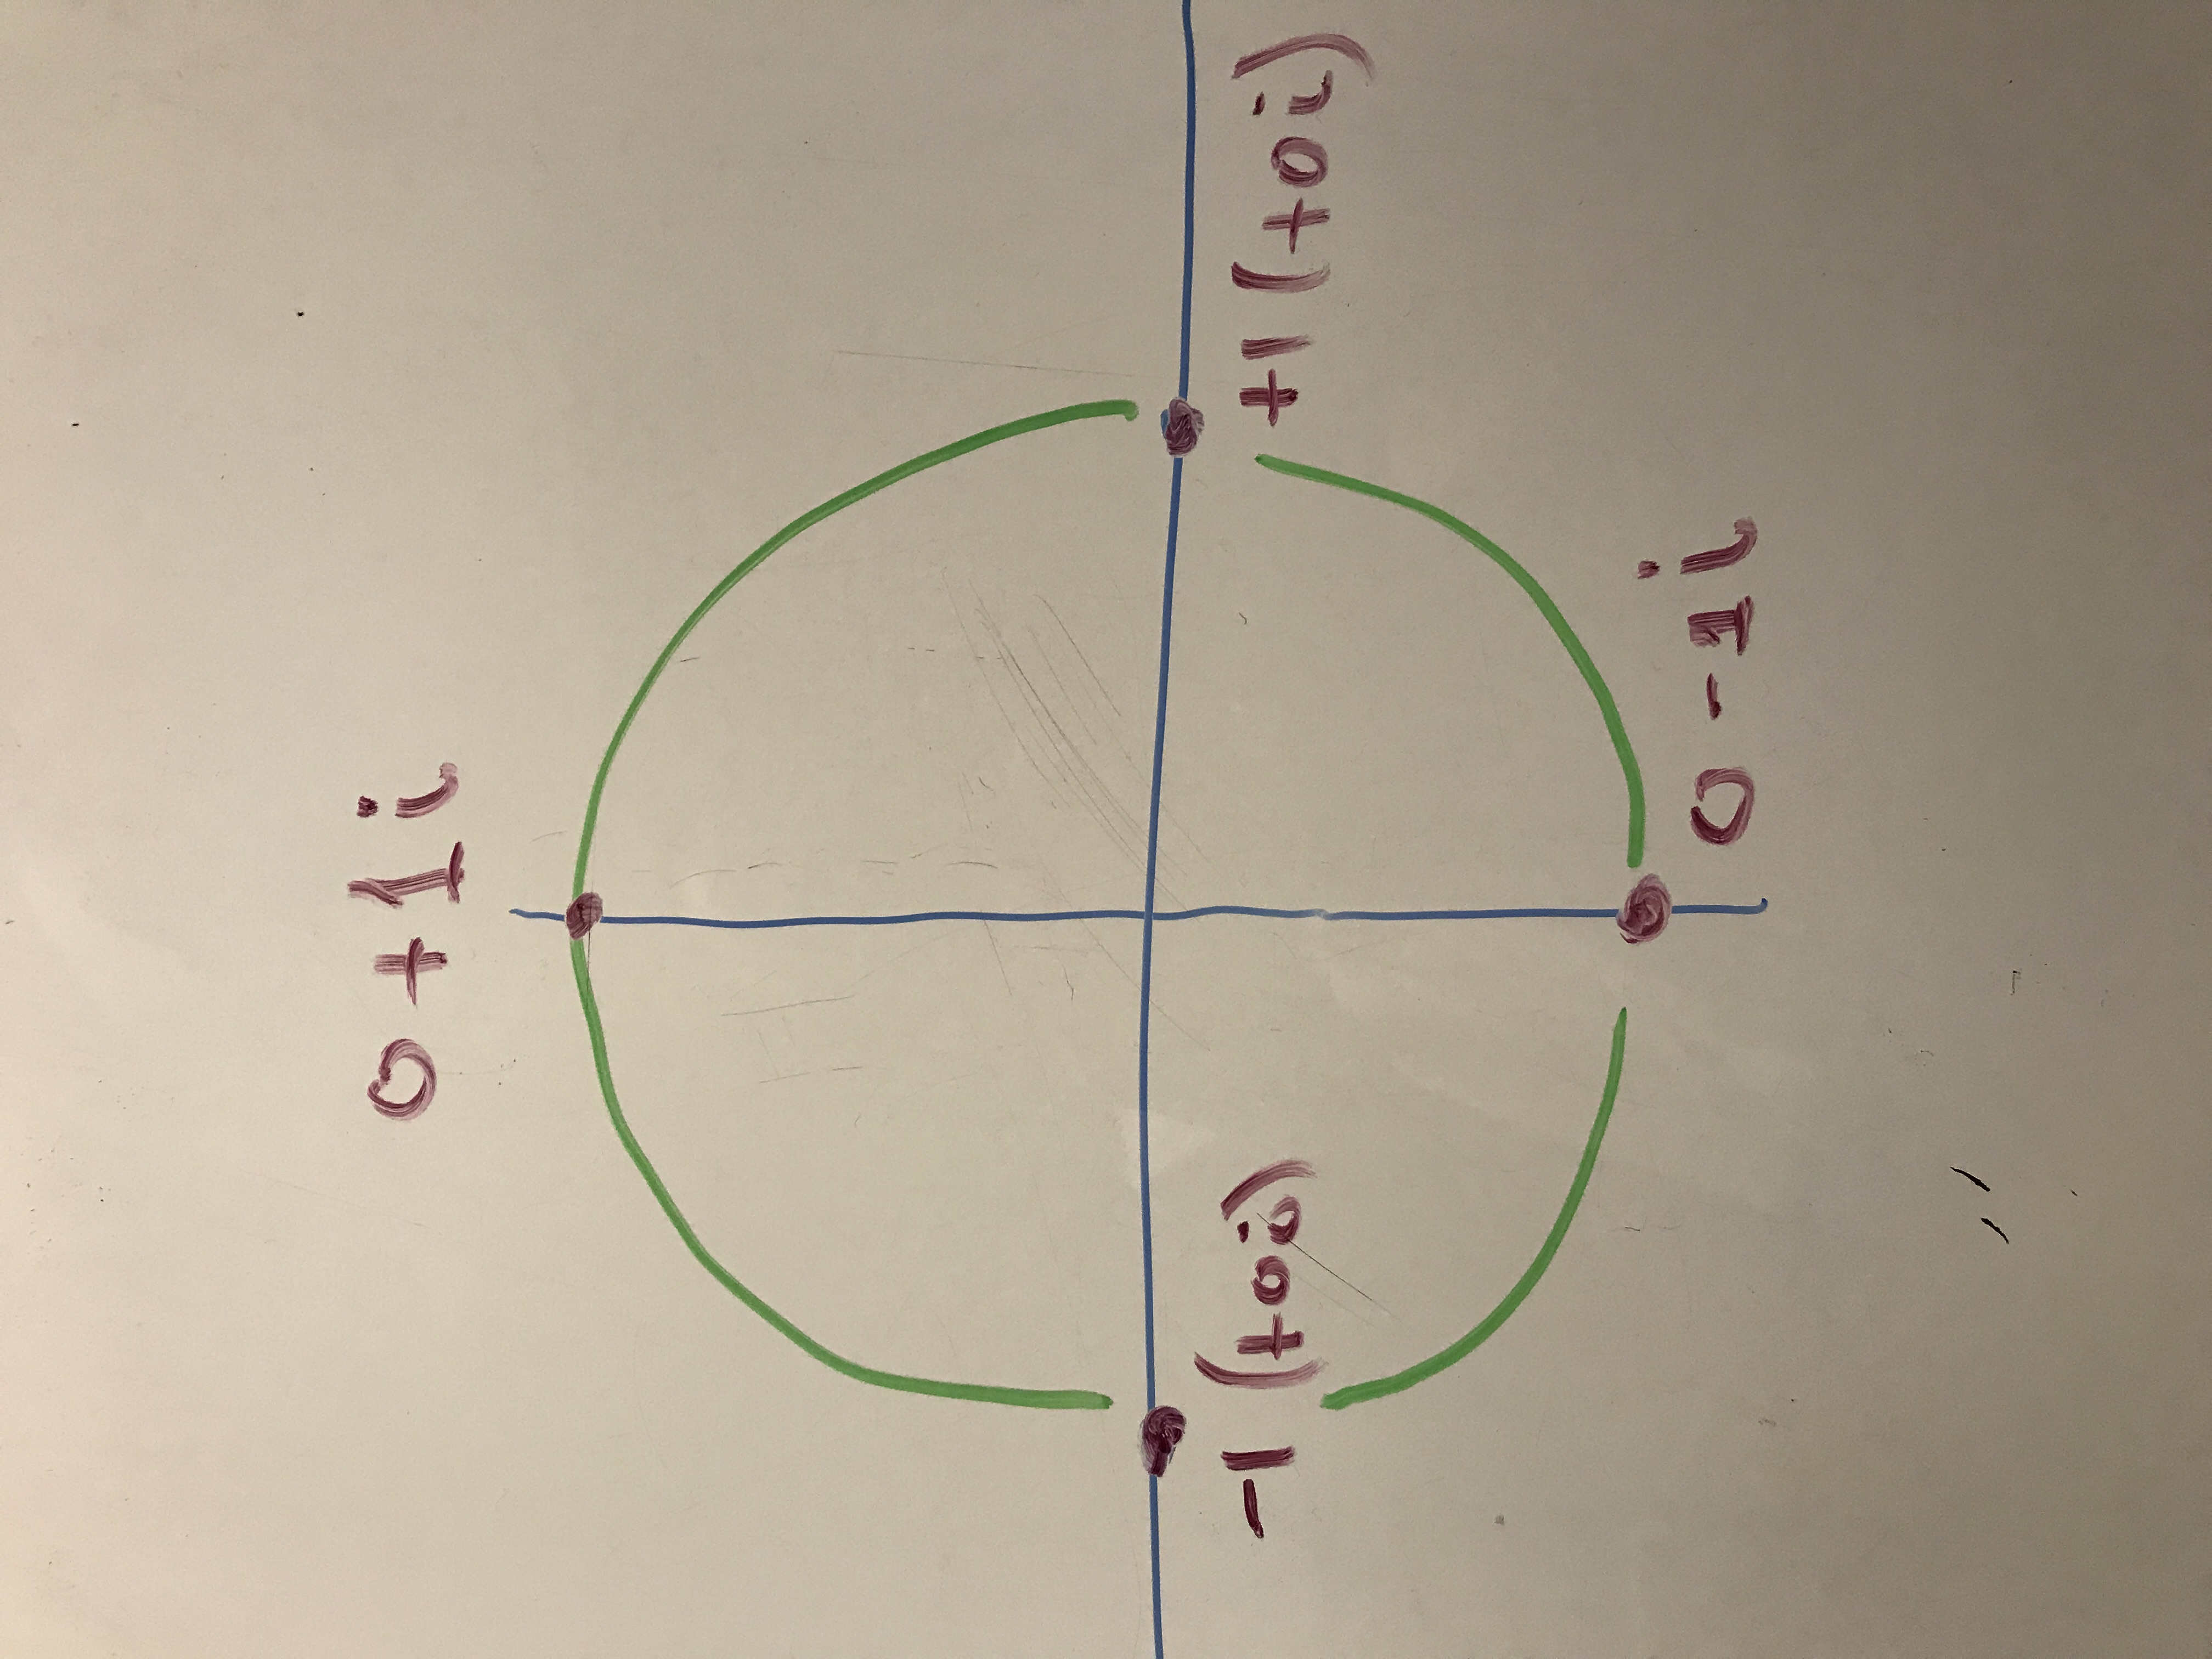 0 + 1 i
-1 (+0i)
+1 (+0i)
0 - 1 i